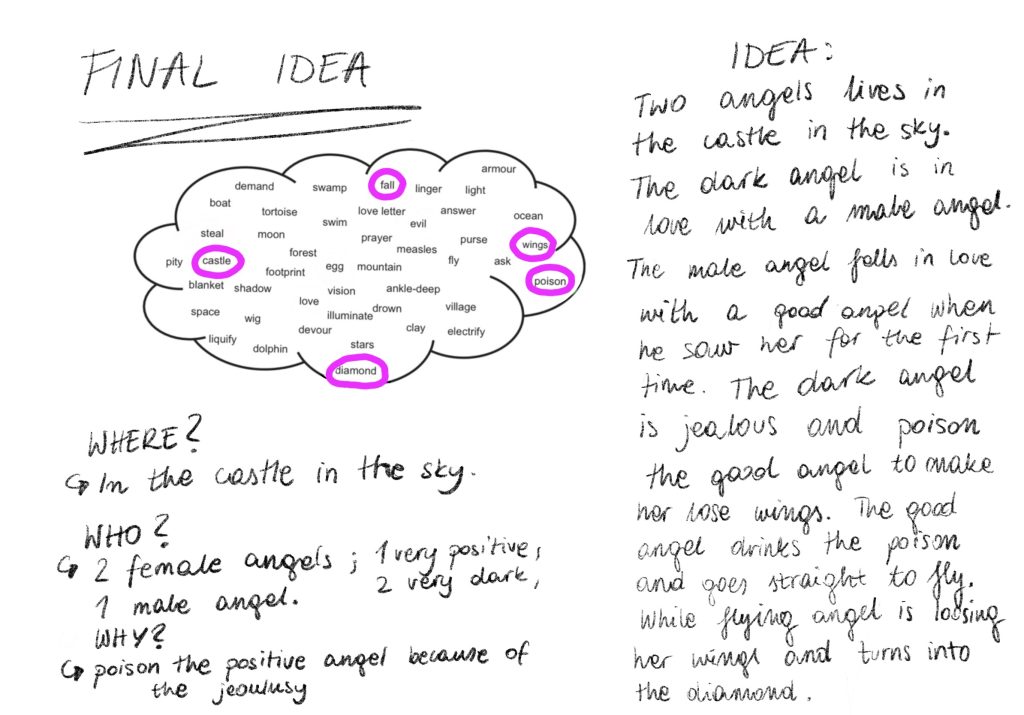 FINAL IDEA
armour
demand swamp fall linger light
boat tortoise love letter answer
swim evil ocean
steal moon prayer purse wings
forest measles
pity castle footprint egg mountain fly ask
poison
blanket shadow vision ankle-deep
love drown village
space wig illuminate
devour clay electrify
liquify dolphin stars
diamond
WHERE?
↪ In the castle in the sky.
WHO?
↪ 2 female angels ; 1 very positive,
2 very dark,
1 male angel.
WHY?
↪ poison the positive angel because of
the jeoulusy
IDEA:
Two angels lives in
the castle in the sky.
The dark angel is in
love with a male angel.
The male angel falls in love
with a good angel when
he saw her for the first
time. The dark angel
is jealous and poison
the good angel to make
her lose wings. The good
angel drinks the poison
and goes straight to fly.
While flying angel is loosing
her wings and turns into
the diamond.